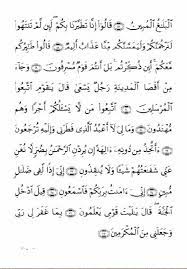 ٱلْبَلَٰغُ ٱلْمُبِينُ قَالُوٓا۟ إِنَّا تَطَيَّرْنَا بِكُمْ لَئِن لَّمْ تَنتَهُوا۟
لَنَرْجُمَنَّكُمْ وَلَيَمَسَّنَّكُم مِّنَّا عَذَابٌ أَلِيمٌ قَالُوا۟ طَٰٓئِرُكُم
مَّعَكُمْ أَئِن ذُكِّرْتُم بَلْ أَنتُمْ قَوْمٌ مُّسْرِفُونَ وَجَآءَ
مِنْ أَقْصَا ٱلْمَدِينَةِ رَجُلٌ يَسْعَىٰ قَالَ يَٰقَوْمِ ٱتَّبِعُوا۟
ٱلْمُرْسَلِينَ ٱتَّبِعُوا۟ مَن لَّا يَسْـَٔلُكُمْ أَجْرًا وَهُم
مُّهْتَدُونَ وَمَا لِىَ لَآ أَعْبُدُ ٱلَّذِى فَطَرَنِى وَإِلَيْهِ تُرْجَعُونَ
ءَأَتَّخِذُ مِن دُونِهِۦٓ ءَالِهَةً إِن يُرِدْنِ ٱلرَّحْمَٰنُ بِضُرٍّ لَّا تُغْنِ
عَنِّى شَفَٰعَتُهُمْ شَيْـًٔا وَلَا يُنقِذُونِ إِنِّىٓ إِذًا لَّفِى ضَلَٰلٍ
مُّبِينٍ إِنِّىٓ ءَامَنتُ بِرَبِّكُمْ فَٱسْمَعُونِ قِيلَ ٱدْخُلِ
ٱلْجَنَّةَ قَالَ يَٰلَيْتَ قَوْمِى يَعْلَمُونَ بِمَا غَفَرَ لِى رَبِّى
وَجَعَلَنِى مِنَ ٱلْمُكْرَمِينَ